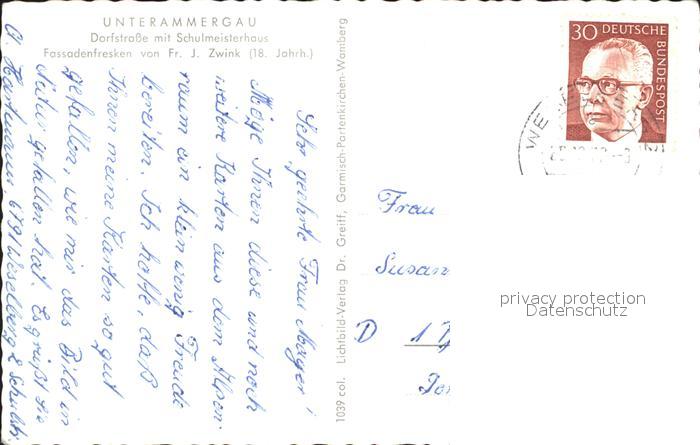 UNTERAMMERGAU
Dorfstraße mit Schulmeisterhaus
Fassadenfresken von Fr. J. Zwink (18. Jahrh.)
Sehr geehrte Frau Mayer!
Möge Ihnen diese und noch
weitere Karten aus dem Alpen-
raum ein klein wenig Freude
bereiten. Ich hoffe, daß
Ihnen meine Karten so gut
gefallen, wie mir das Bild in
Natur gefallen hat. Es grüßt Sie
A. Hartmann 6791
1039 col. Lichtbild-Verlag Dr. Greiff, Garmisch-Partenkirchen-Wamberg
30 DEUTSCHE
BUNDESPOST
WE
Frau
Susan
D 1
privacy protection
Datenschutz